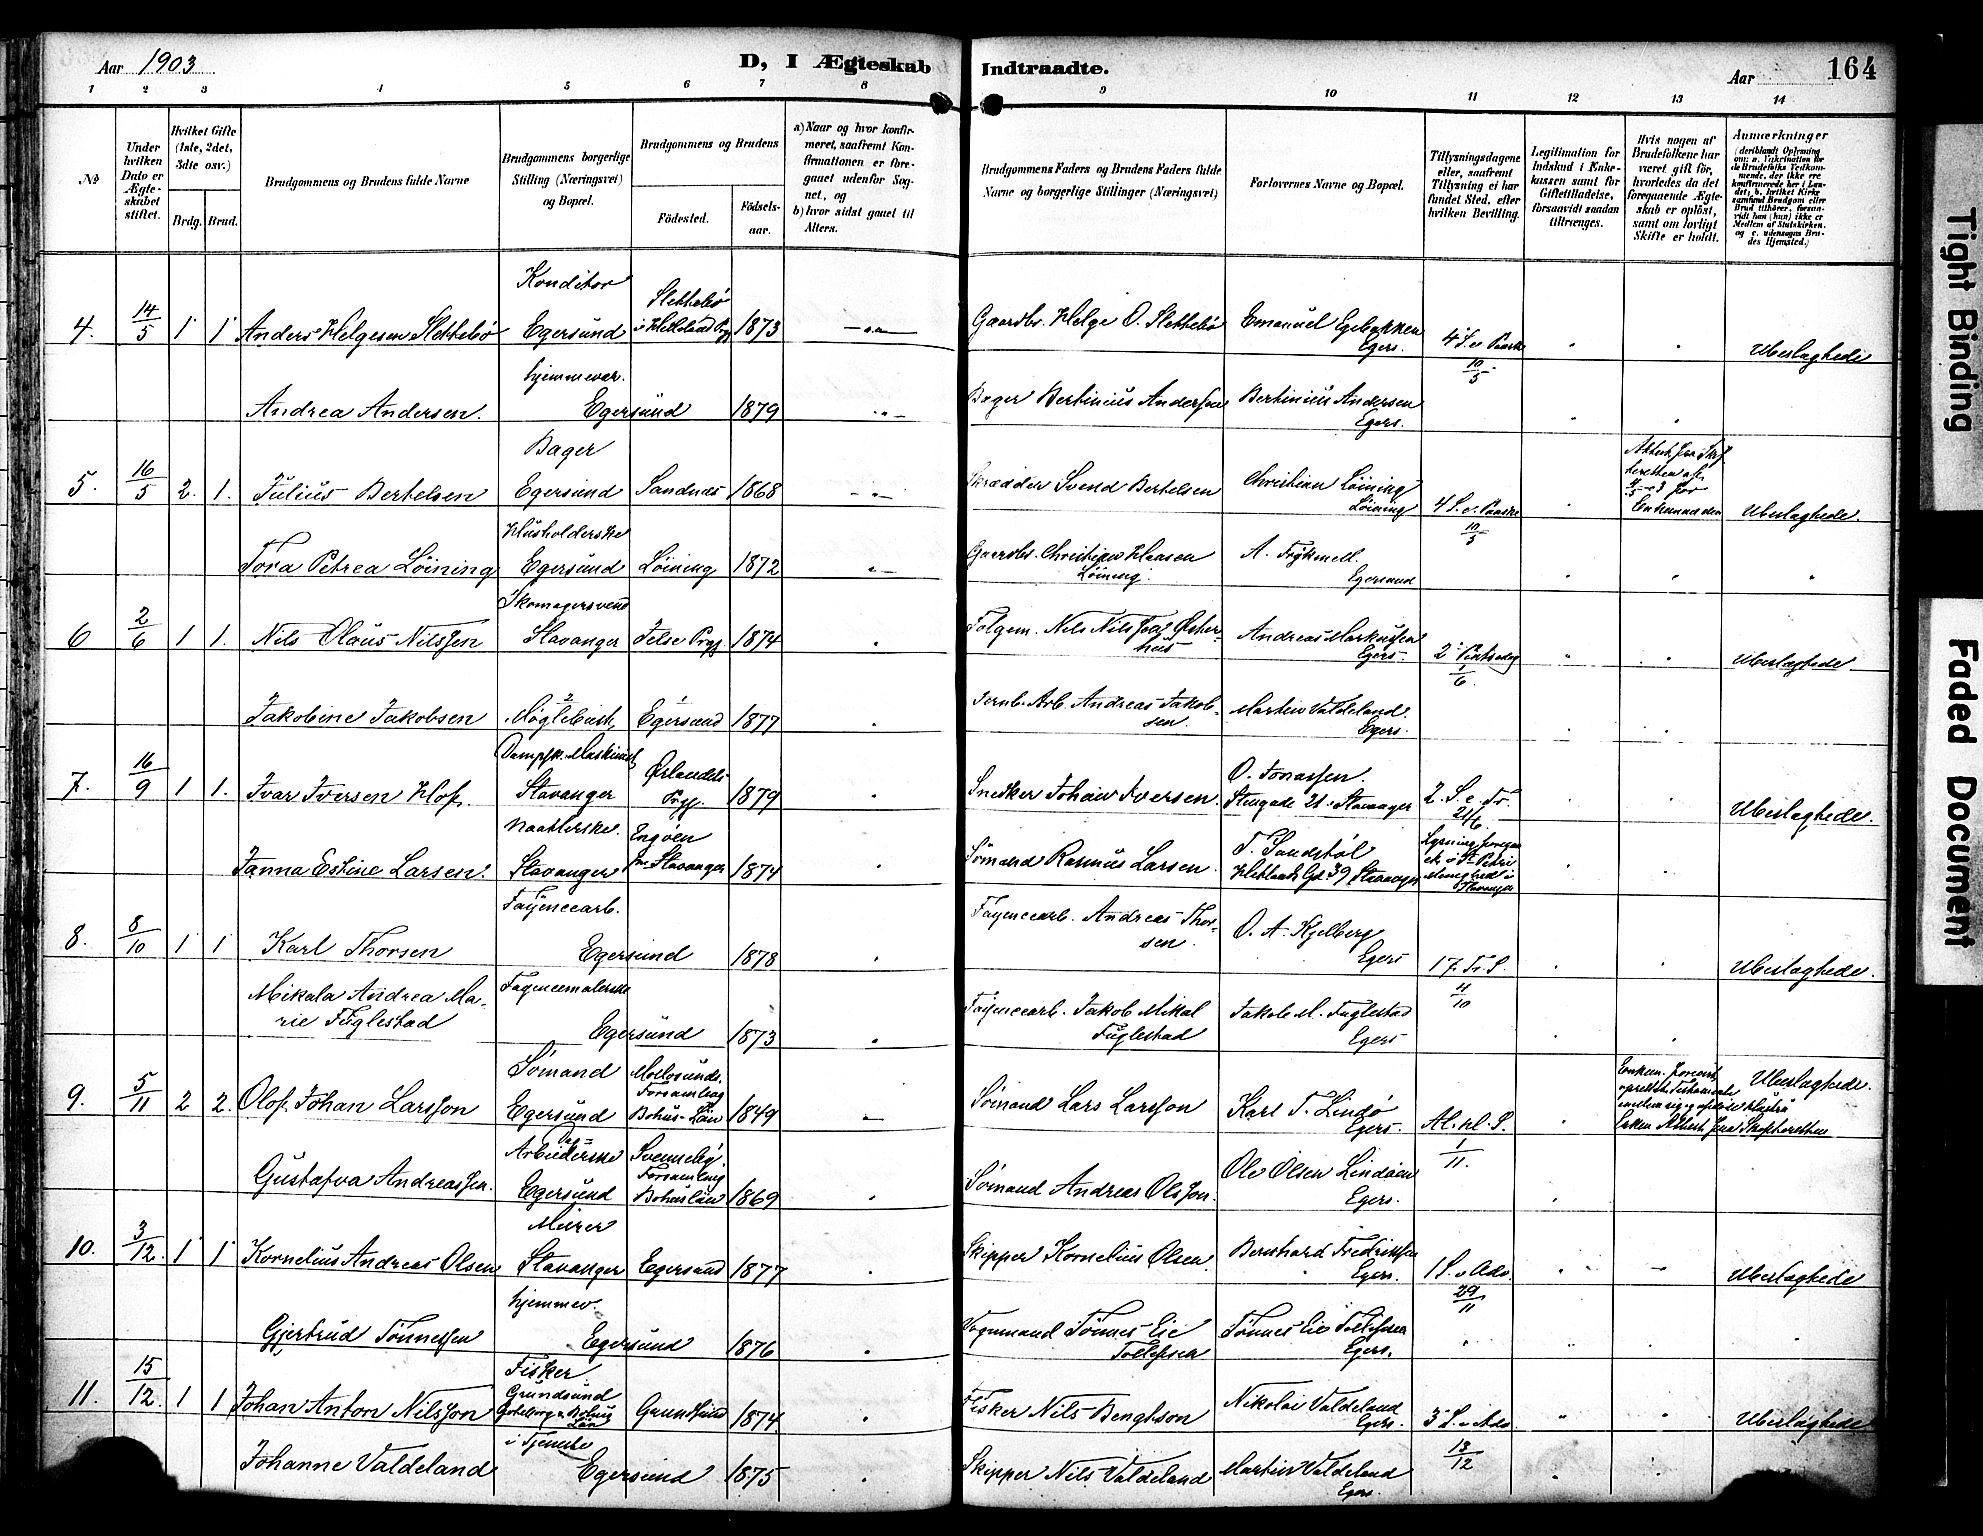 Aar 1903
D, I Ægteskab Indtraadte.
Aar
164
1 2 3 4 5 6 7 8 9 10 11 12 13 14
No
Under hvilken Dato er Ægteskabet stiftet.
Hvilket Gifte (1ste, 2det, 3die osv.)
Brdg. Brud.
Brudgommens og Brudens fulde Navne
Brudgommens borgerlige Stilling (Næringsvei) og Bopæl.
Brudgommens og Brudens
Fødested.
Fødselsaar.
a) Naar og hvor konfirmeret, saafremt Konfirmationen er foregaaet udenfor Sognet, og
b) hvor sidst gaaet til Alters.
Brudgommens Faders og Brudens Faders fulde Navne og borgerlige Stillinger (Næringsvei)
Forlovernes Navne og Bopæl.
Tillysningsdagene eller, saafremt Tillysning ei har fundet Sted, efter hvilken Bevilling.
Legitimation for Indskud i Enkekassen samt for Giftetilladelse, forsaavidt saadan tiltrænges.
Hvis nogen af Brudefolkene har været gift før, hvorledes da det foregaaende Ægteskab er opløst, samt om lovligt Skifte er holdt.
Anmærkninger (deriblandt Oplysning om: a. Vakcination for de Brudefolks Vedkommende, der ikke ere konfirmerede her i Landet; b. hvilket Kirkesamfund Brudgom eller Brud tilhører, forsaavidt han (hun) ikke er Medlem af Statskirken, og c. udensogns Brudes Hjemsted.)
4. 14/5 1 1 Anders Helgesen Slettebø Konditor Egersund Slettebø i Helleland Prg 1873 Gaardbr. Helge O. Slettebø Emanuel Egebakken Egers. 4 S. e Paaske 10/5 Uberlaghede
Andrea Andersen. hjemmevær. Egersund 1879 Bager Bertinius Andersen Bertinius Andersen Egers.
5. 16/5 2. 1. Julius Bertelsen Bager Egersund Sandnæs 1868 Skrædder Svend Bertelsen Christian Løining Løining 4 S. e. Paaske 10/5 Uberlaghede.
Tora Petrea Løining Husholderske Egersund Løining 1872 Gaardbr. Christian Hansen Løining. A. Trykmell Egersund
6 2/6 1 1. Nils Olaus Nilssen Skomagersvend Stavanger Jelse Prgj 1874 Folgem. Nils Nilssen Østerhus Andreas Markussen Egers. 2 Pintsedag 1/6. Uberlaghede
Jakobine Jakobsen Egersund 1877 Jernb. Arb. Andreas Jakobsen. Martin Valdeland. Egers.
7. 16/9 1 1. Ivar Iversen Hof. Dampsk. Maskinist Stavanger Ørlandets Prgj. 1879 Snedker Johan Iversen. O. Jonassen. Stengade 21. Stavanger 2. S. e. Tr. 21/6 Uberlaghede.
Janna Estine Larsen. Stavanger Engøen Stavanger 1874 Sømand Rasmus Larsen. T. Sandstøl 39 Stavanger Lysning St. Petri Menighed i Stavanger
8. 8/10 1 1 Karl Thorsen Fayencearb. Egersund 1878 Fayencearb. Andreas Thorsen. O. A. Kjelberg Egers 17. Tr. S. 4/10 Uberlaghede.
Mikala Andrea Marie Fuglestad Fayencemalerske Egersund 1873 Fayencearb. Jakob Mikal Fuglestad Jakob M. Fuglestad Egers
9. 5/11 2 2. Olof. Johan Larsson Sømand Egersund Mollosunds. Forsamling Bohus-Län 1849 Sømand Lars Larsson Karl T. Lindø Egers. Al. hl. S. 1/11. Uberlaghede.
Gustafva Andreassen. Arbeiderske Egersund Forsamling Bohuslän 1869 Sømand Andreas Olsson. Ole Olsen Lindøen Egers.
10. 3/12. 1 1 Kornelius Andreas Olsen Murer Stavanger Egersund 1877 Skipper Kornelius Olsen. Bernhard Fredriksen Egers. 1 S. i Adv. 29/11 Uberlaghede
Gjertrud Tønnessen hjemmev. Egersund 1876 Vognmand Tønnes Eie Tollefsen Tønnes Eie Tollefsen Egers.
11. 15/12. 1 1 Johan Anton Nilsson Fisker Grundsund Gøteborg o. Bohus Län Grundsund 1874. Fisker Nils Bengtson Nikolai Valdeland Egers. 3 S. i Adv 13/12 Uberlaghede
Johanne Valdeland i Tjeneste Egersund 1875 Skipper Nils Valdeland Martin Valdeland Egers.
Tight Binding
Faded Document